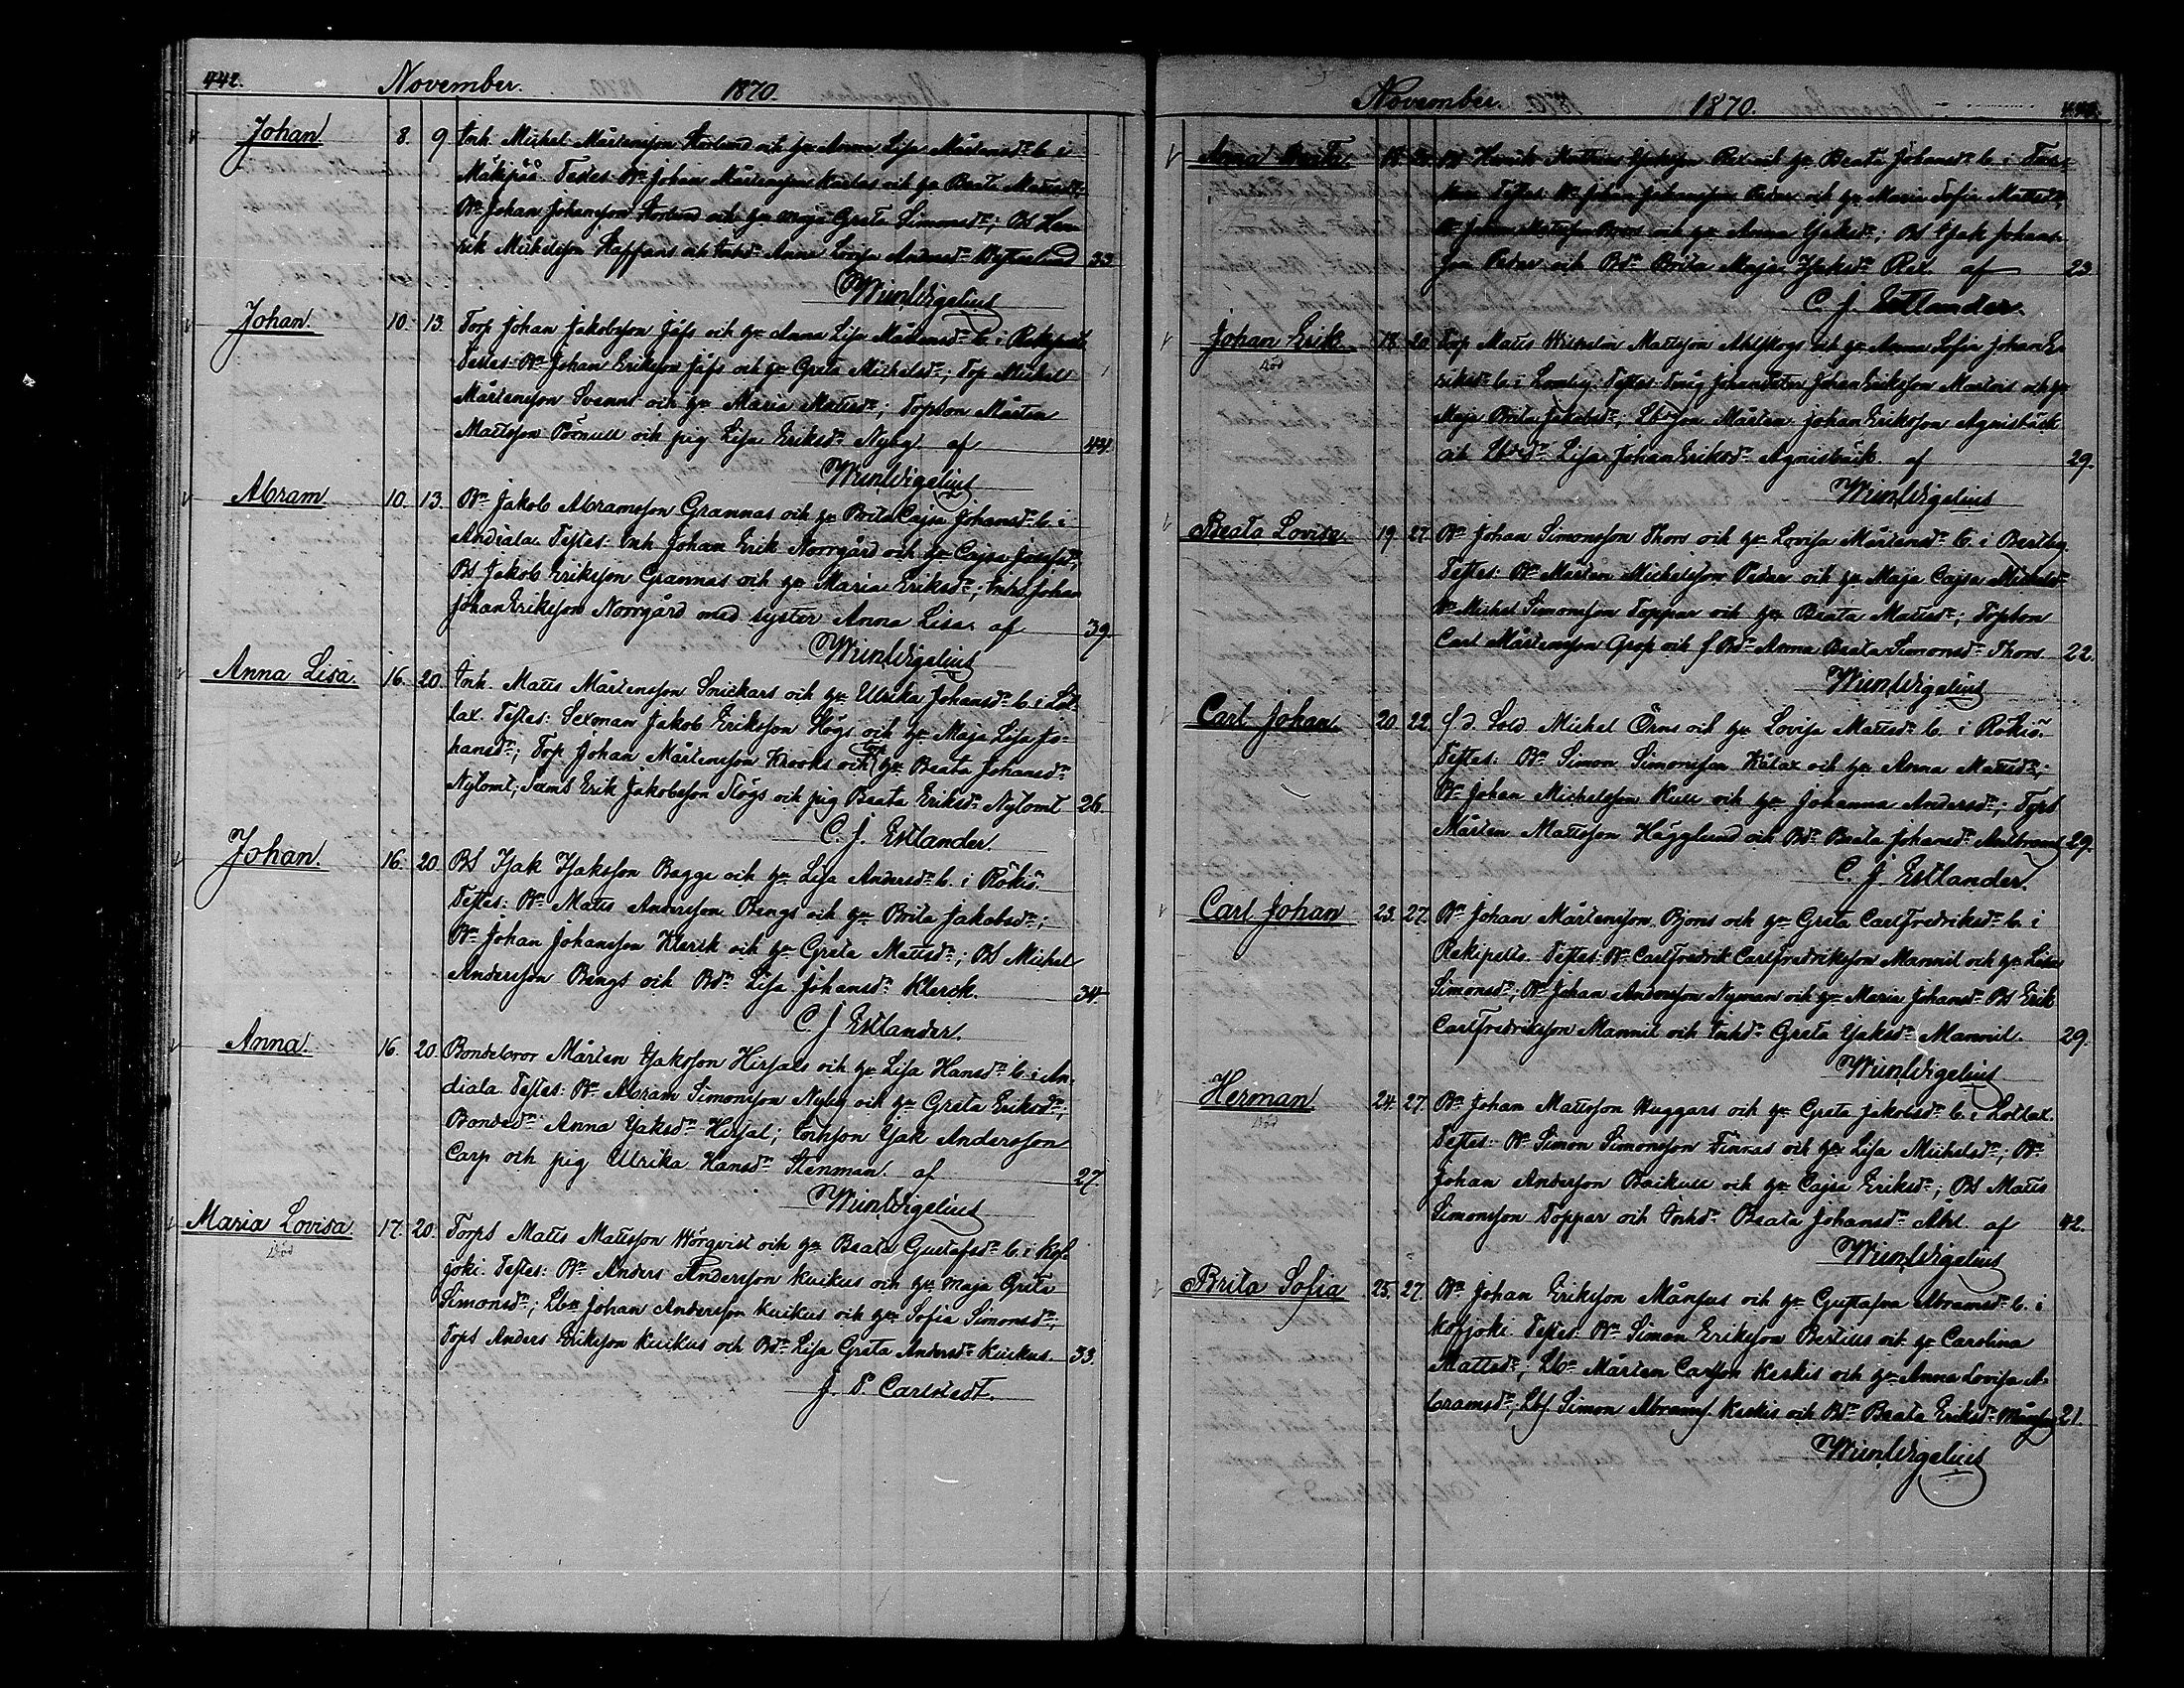 442. November. 1870.
Johan 8. 9. Inh. Michel Mårtensson Storlund och hu Anna Lisa Mårtensdr b. i
Måkipää Testes: Bn Johan Mårtensson och hu Beata Mattsdr;
Bn Johan Johansson Storlund och hu Maja Greta Simonsdr; BS Hen
rik Mickelsson Staffans och Inhdr Anna Lovisa Andersdr 33
Wigelius
Johan. 10. 13. Torp Johan Jakobsson Jåfs och hu Anna Lisa Mårtensdr b. i
Testes: Bn Johan Eriksson Jåfs och hu Greta Michelsdr; Torp Mickel
Mårtensson Svenns och hu Maria Mattsdr; Torpson Mårten
Mattsson Pörnull och pig Lisa Eriksdr Nyby. af 44.
Wigelius
Abram 10. 13. Bn Jakob Abramsson Grannas och hu Brita Cajsa Johansdr b. i
Andiala. Testes: Inh Johan Erik Norrgård och hu Cajsa Josefsdr;
BS Jakob Eriksson Grannas och hu Maria Eriksdr; Inhs Johan
Johan Eriksson Norrgård med syster Anna Lisa. af 39.
Wigelius
Anna Lisa. 16. 20. Inh. Matts Mårtensson Snickars och hu Ulrika Johansdr b. i Lol
lax. Testes: Sexman Jakob Eriksson Högs och hu Maja Lisa Jo-
hansdr; Torp Johan Mårtensson Krooks och hu Beata Johansdr
Nytomt; Erik Jakobsson och pig Beata Eriksdr Nytomt 26.
C. J. Estlander.
Johan. 16. 20. BS Isak Isaksson Bagge och hu Lisa Andersdr b. i Röksö.
Testes: Bn Matts Andersson Bengs och hu Brita Jakobsdr;
Bn Johan Johansson Klerck och hu Greta Mattsdr; BS Michel
Andersson Bengs och Bdr Lisa Johansdr Klerck. 34.
C. J. Estlander.
Anna. 16. 20. Bondebror Mårten Isaksson Hirsals och hu Lisa Hansdr b. i An-
diala. Testes: Bn Abram Simonsson Nyby och hu Greta Eriksdr;
Bondedr Anna Isaksdr Hirsal; Inhson Isak Andersson
Carp och pig Ulrika Hansdr Stenman. af 27.
Wigelius
Maria Lovisa. 17. 20. TorpS Matts Mattsson Wörqvist och hu Beata Gustafsdr b. i Kof-
Död
joki. Testes: Bn Anders Andersson Kuikus och hu Maja Greta
Simonsdr; Lbn Johan Andersson Kuikus och hu Sofia Simonsdr;
TorpS Anders Eriksson Kuikus och Bdr Lisa Greta Andersdr Kuikus. 33.
J. P. Carlstedt.
November. 1870. 443.
Anna Beata 18. 20. BS Henrik Isaksson Rex och hu Beata Johansdr b. i
Testes: Bn Johan Johansson Peder och hu Maria Sofia Mattsdr;
Bn Johan Mattsson och hu Anna Isaksdr; BS Isak Johans
son Peder och Bdr Brita Maja Isaksdr Rex. af 23.
C. J. Estlander.
Johan Erik 18. 20. Torp Matts Wilhelm Mattsson Ahlskogs och hu Anna Sofia Johan E-
Död
riksdr b. i Lomby. Testes: Johan Peter Johan Eriksson Martens och hu
Maja Brita Jakobsdr; Lbrson Mårten Johan Eriksson Agnisbäck
och Lbrdr Lisa Johan Eriksdr Agnisbäck af 29.
Wigelius
Beata Lovisa. 19. 27. Bn Johan Simonsson Thors och hu Lovisa Mårtensdr b. i Bertby.
Testes: Bn Mårten Michelsson Peder och hu Maja Cajsa Michelsdr
Bn Michel Simonsson Toppar och hu Beata Mattsdr; Torpson
Carl Mårtensson Grop och f Bdr Anna Beata Simonsdr Thors 22.
Wigelius
Carl Johan. 20. 22. f. d. Sold Michel Örns och hu Lovisa Mattsdr b. i Röksö.
Testes: Bn Simon Simonsson Kålax och hu Anna Mattsdr;
Bn Johan Michelsson Kull och hu Johanna Andersdr; TorpS
Mårten Mattsson Hägglund och Bdr Beata Johansdr 29.
C. J. Estlander.
Carl Johan 23. 27. Bn Johan Mårtensson Bjons och hu Greta Carlfredriksdr b. i
Rekipelto. Testes: Bn Carlfredrik Carlfredriksson Mannil och hu Lisa
Simonsdr; Bn Johan Andersson Nyman och hu Maria Johansdr BS Erik
Carlfredriksson Mannil och Inhdr Greta Isaksdr Mannil. 29.
Wigelius
Herman 24. 27. Bn Johan Mattsson Huggars och hu Greta Jakobsdr b. i Lollax.
Död
Testes: Bn Simon Simonsson Finnas och hu Lisa Michelsdr; Bn
Johan Andersson Baikull och hu Cajsa Eriksdr; BS Matts
Simonsson Toppar och Inhdr Beata Johansdr Ahl. af 42.
Wigelius
Brita Sofia 25. 27. Bn Johan Eriksson Månsus och hu Gustafva Abramsdr b. i
Kofjoki. Testes: Bn Simon Eriksson Bertils och hu Carolina
Mattsdr; Lbn Mårten Carlsson Keskis och hu Anna Lovisa A-
bramsdr; Lbs Simon Abrams. Keskis och Bdr Beata Eriksdr Månsus 21.
Wigelius